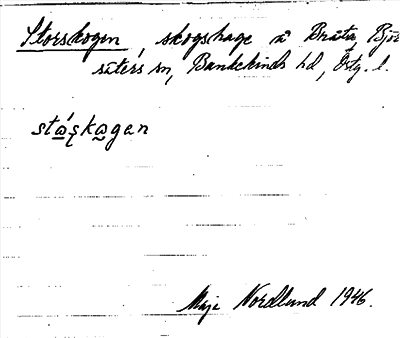 Storskogen, skogshage å Bråta, Björ
säters sn, Bankekinds hd, Östg. l.
stɷ́ʂkɷgen
Maja Nordlund 1946.